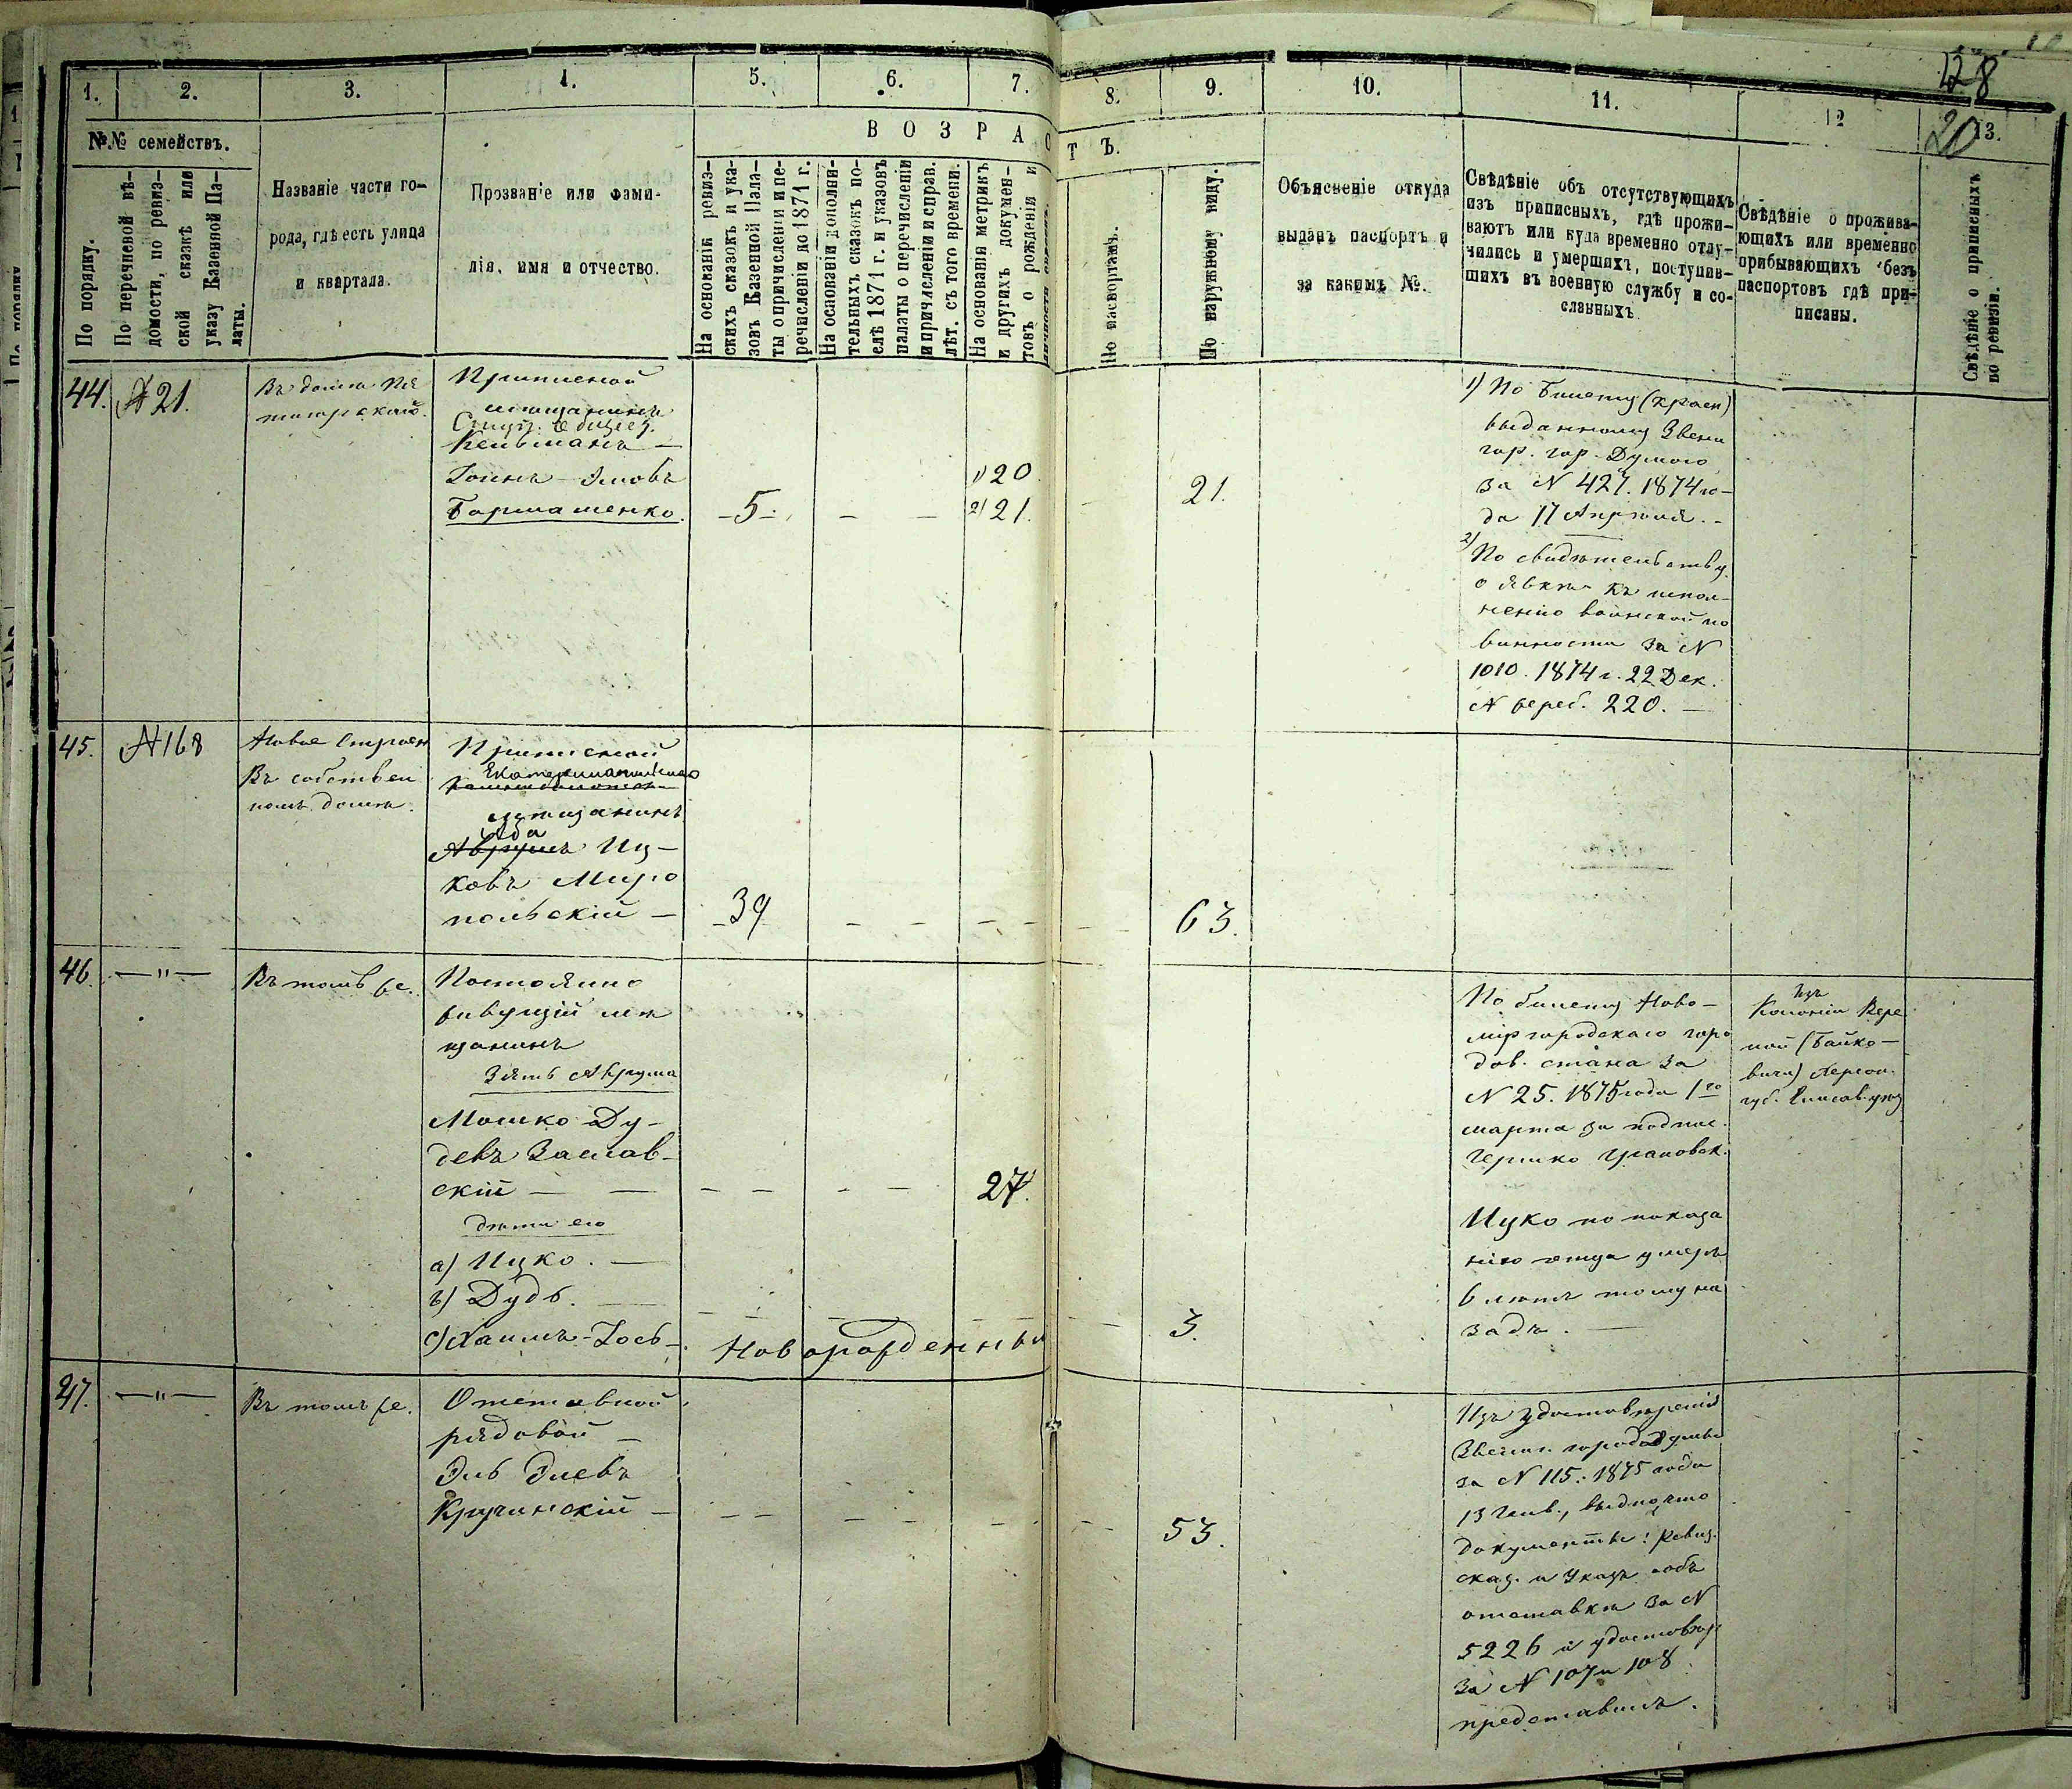 128
20
1.
2.
3.
4.
5.
6.
7.
8.
9.
10.
11.
12
13.
№№ семействъ.
По порядку.
По перечневой вѣ-
домости, по ревиз-
ской сказкѣ или
указу Казенной Па-
латы.
Названіе части го-
рода, гдѣ есть улица
и квартала.
Прозваніе или фами-
лія, имя и отчество.
ВОЗРАСТЪ.
На основаніи ревиз-
скихъ сказокъ и ука-
зовъ Казенной Пала-
ты о причисленіи и пе-
речисленіи до 1871 г.
На основаніи дополни-
тельныхъ сказокъ по-
слѣ 1871 г. и указовъ
палаты о перечисленіи
и причисленіи и справ.
лѣт. съ того времени.
На основаніи метрикъ
и другихъ докумен-
товъ о рожденіи и
По паспортамъ.
По наружному виду.
Объясненіе откуда
выданъ паспортъ и
за какимъ №.
Свѣдѣніе объ отсутствующихъ
изъ приписныхъ, гдѣ прожи-
ваютъ или куда временно отлу-
чились и умершихъ, поступив-
шихъ въ военную службу и со-
сланныхъ
Свѣдѣніе о прожива-
ющихъ или временно
прибывающихъ безъ
паспортовъ гдѣ при-
писаны.
Свѣдѣніе о приписныхъ
по ревизіи.
44.
№ 21.
Въ домѣ
Приписной
мѣщанинъ
Кельманъ —
Боршатенко.
- 5 -
1) 20
2) 21.
21.
1) По билету
выданному Звени
гор. гор. Думою
за № 427. 1874 го-
да 17 Апрѣля. -
2) По свидѣтельству
о явкѣ къ испол-
ненію воинской по
винности за №
1010. 1874 г. 22 Дек.
№ жереб. 220. —
45.
№ 168
Новое Строен
Въ собствен
номъ домѣ.
Приписной
мѣщанинъ
Аврумъ Иц-
ковъ Миро
польскій —
39
63.
46.
— " —
Въ томъ же.
Постоянно
живущій мѣ
щанинъ
Зять Аврума
Мошко Ду-
девъ Заслав-
скій — —
27.
дѣти его
а) Ицко. —
b) Дудь. —
3.
c) Хаимъ-Іось -
Новорожденный
По билету Ново-
міргородскаго горо
дов. стана за
№ 25. 1875 года 1го
марта за подпис.
Ицко по показа
нію отца умеръ
6 лѣтъ тому на
задъ. —
Изъ
Колоніи
губ. Елисав. уѣз
47.
— " —
Въ томъ же.
Отставной
рядовой —
Эль Элевъ
Кручинскій —
53.
Изъ удостовѣренія
Звениг. город. думы
за № 115. 1875 года
13 Генв., видно, что
документы: ревиз.
сказ. и Указъ объ
отставкѣ за №
5226 и удостовѣр
за № 107 и 108
представилъ.